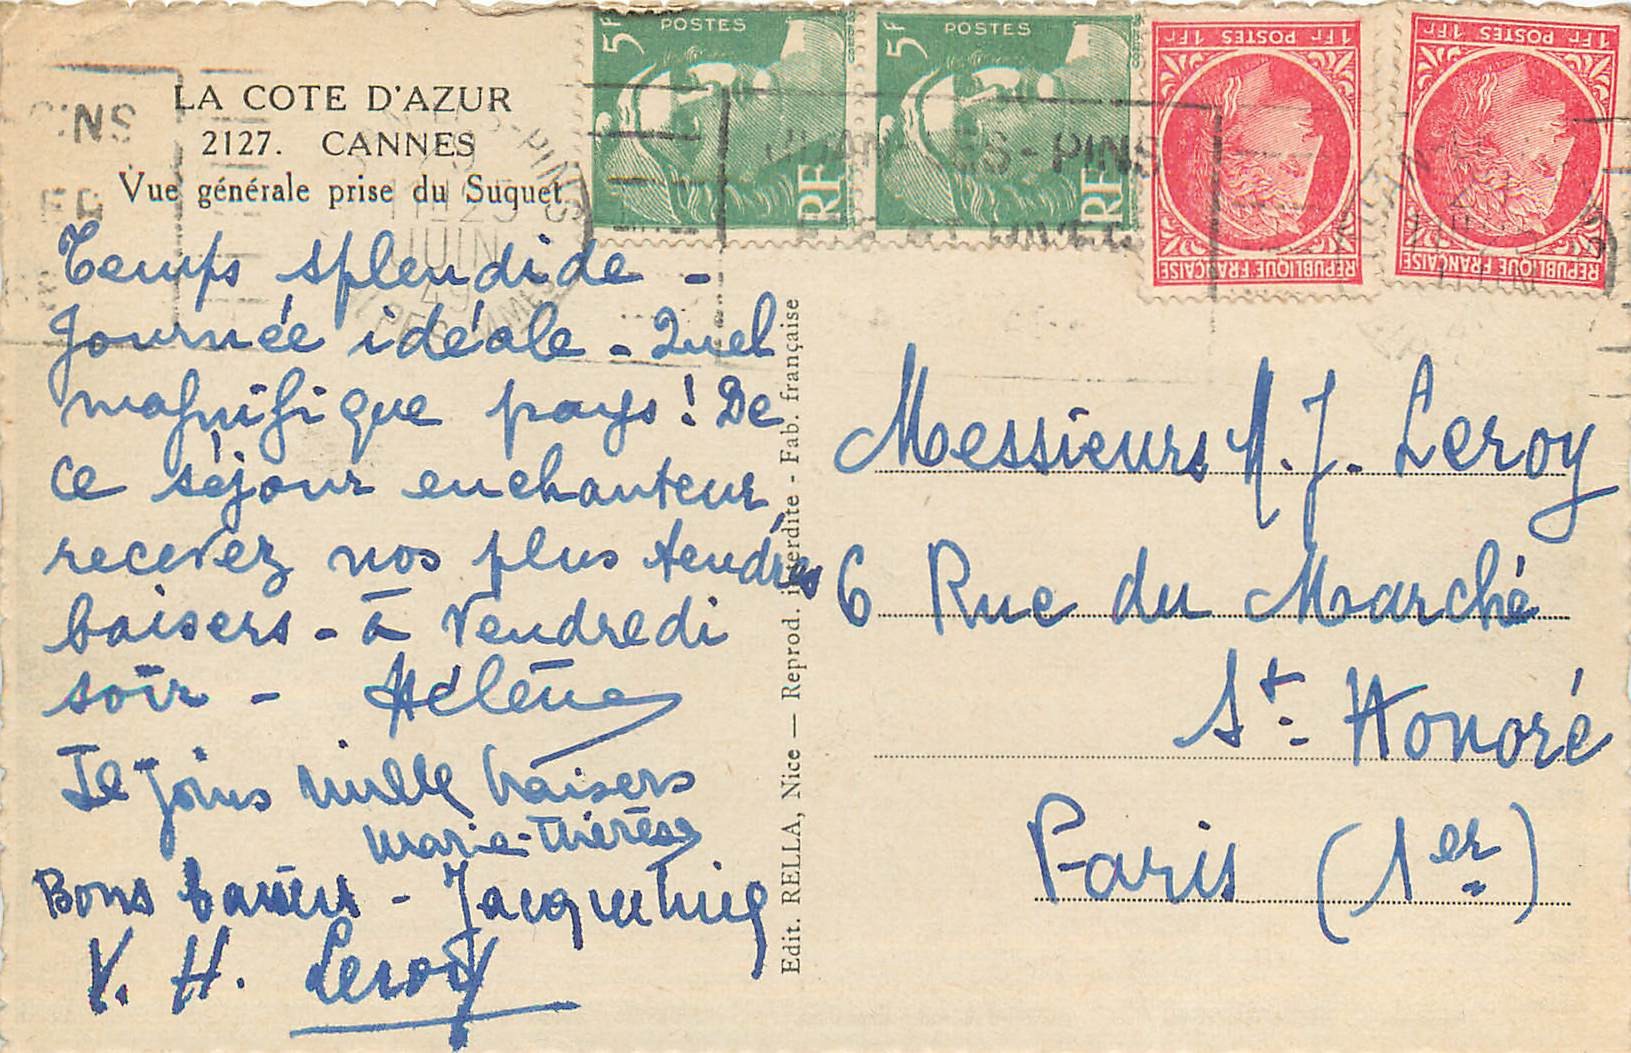 LA COTE D'AZUR
2127. CANNES
Vue générale prise du Suquet
Temps splendide -
Journée idéale - Quel
magnifique pays ! De
ce séjour enchanteur,
recevez nos plus tendres
baisers - à Vendredi
soir - Hélène
Je joins mille baisers
Marie-Thérèse
Bons baisers - Jacqueline
V. H. Leroy
Edit. RELLA, Nice — Reprod. interdite - Fab. française
5F POSTES
RF
5F POSTES
RF
1Fr. POSTES 1Fr.
REPUBLIQUE FRANÇAISE
1Fr. POSTES 1Fr.
REPUBLIQUE FRANÇAISE
JUAN-LES-PINS
JUIN
49
Messieurs M. J. Leroy
6 Rue du Marché
St. Honoré
Paris (1er)